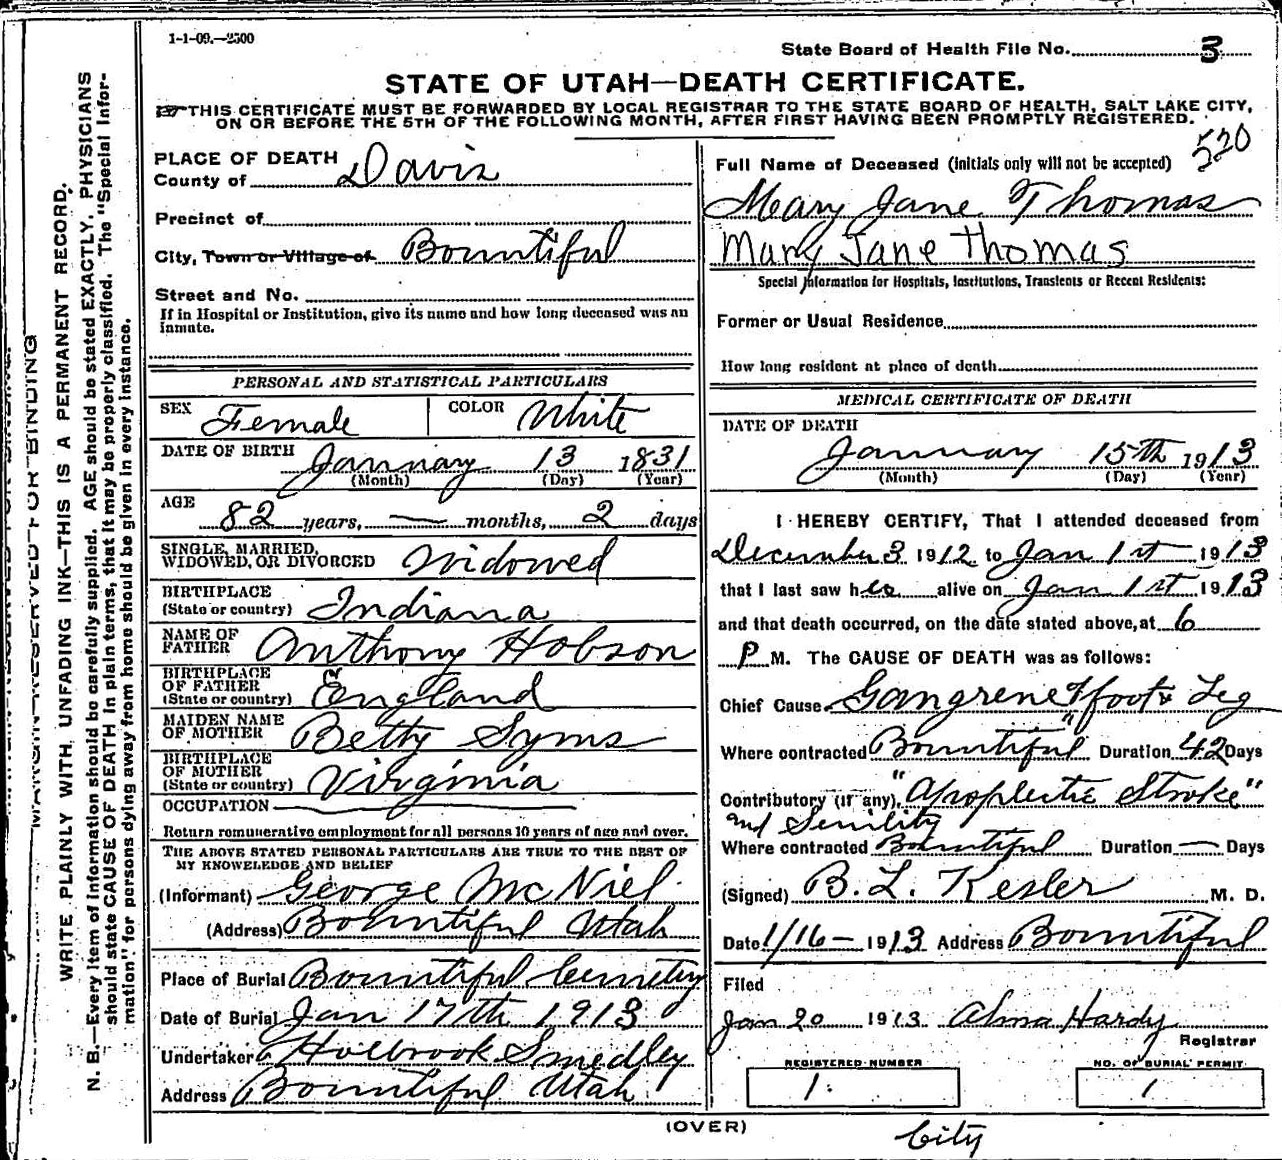 1-1-09.—2500
State Board of Health File No. 3
STATE OF UTAH—DEATH CERTIFICATE.
THIS CERTIFICATE MUST BE FORWARDED BY LOCAL REGISTRAR TO THE STATE BOARD OF HEALTH, SALT LAKE CITY,
ON OR BEFORE THE 5TH OF THE FOLLOWING MONTH, AFTER FIRST HAVING BEEN PROMPTLY REGISTERED.
520
WRITE PLAINLY WITH UNFADING INK—THIS IS A PERMANENT RECORD.
N. B.—Every item of information should be carefully supplied. AGE should be stated EXACTLY. PHYSICIANS
should state CAUSE OF DEATH in plain terms, that it may be properly classified. The "Special Infor-
mation" for persons dying away from home should be given in every instance.
PLACE OF DEATH
County of Davis
Precinct of
City, Town or Village of Bountiful
Street and No.
If in Hospital or Institution, give its name and how long deceased was an
inmate.
PERSONAL AND STATISTICAL PARTICULARS
SEX Female COLOR White
DATE OF BIRTH January 13 1831
(Month) (Day) (Year)
AGE
82 years, — months, 2 days
SINGLE, MARRIED,
WIDOWED, OR DIVORCED Widowed
BIRTHPLACE
(State or country) Indiana
NAME OF
FATHER Anthony Hobson
BIRTHPLACE
OF FATHER
(State or country) England
MAIDEN NAME
OF MOTHER Betty Syms
BIRTHPLACE
OF MOTHER
(State or country) Virginia
OCCUPATION
Return remunerative employment for all persons 10 years of age and over.
THE ABOVE STATED PERSONAL PARTICULARS ARE TRUE TO THE BEST OF
MY KNOWELEDGE AND BELIEF
(Informant) George McNiel
(Address) Bountiful Utah
Place of Burial Bountiful Cemetery
Date of Burial Jan 17th 1913
Undertaker Holbrook Smedley
Address Bountiful Utah
Full Name of Deceased (initials only will not be accepted)
Mary Jane Thomas
Mary Jane Thomas
Special Information for Hospitals, Institutions, Transients or Recent Residents:
Former or Usual Residence
How long resident at place of death
MEDICAL CERTIFICATE OF DEATH
DATE OF DEATH
January 15th 1913
(Month) (Day) (Year)
I HEREBY CERTIFY, That I attended deceased from
December 3 1912 to Jan 1st 1913
that I last saw her alive on Jan 1st 1913
and that death occurred, on the date stated above, at 6
P M. The CAUSE OF DEATH was as follows:
Chief Cause Gangrene of foot & Leg
Where contracted Bountiful" Duration 42 Days
Contributory (if any) "Apoplectic Stroke"
and Senility
Where contracted Bountiful Duration — Days
(Signed) B. L. Kesler M. D.
Date 1/16— 1913 Address Bountiful
Filed
Jan 20 1913 Alma Hardy
Registrar
REGISTERED NUMBER NO. OF BURIAL PERMIT
1. 1
(OVER)
City